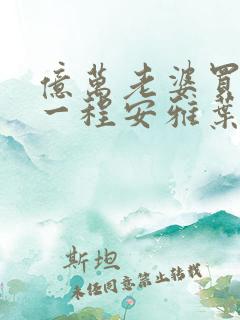 億萬老婆買
一程安雅葉
斯坦
未任同意禁止转载